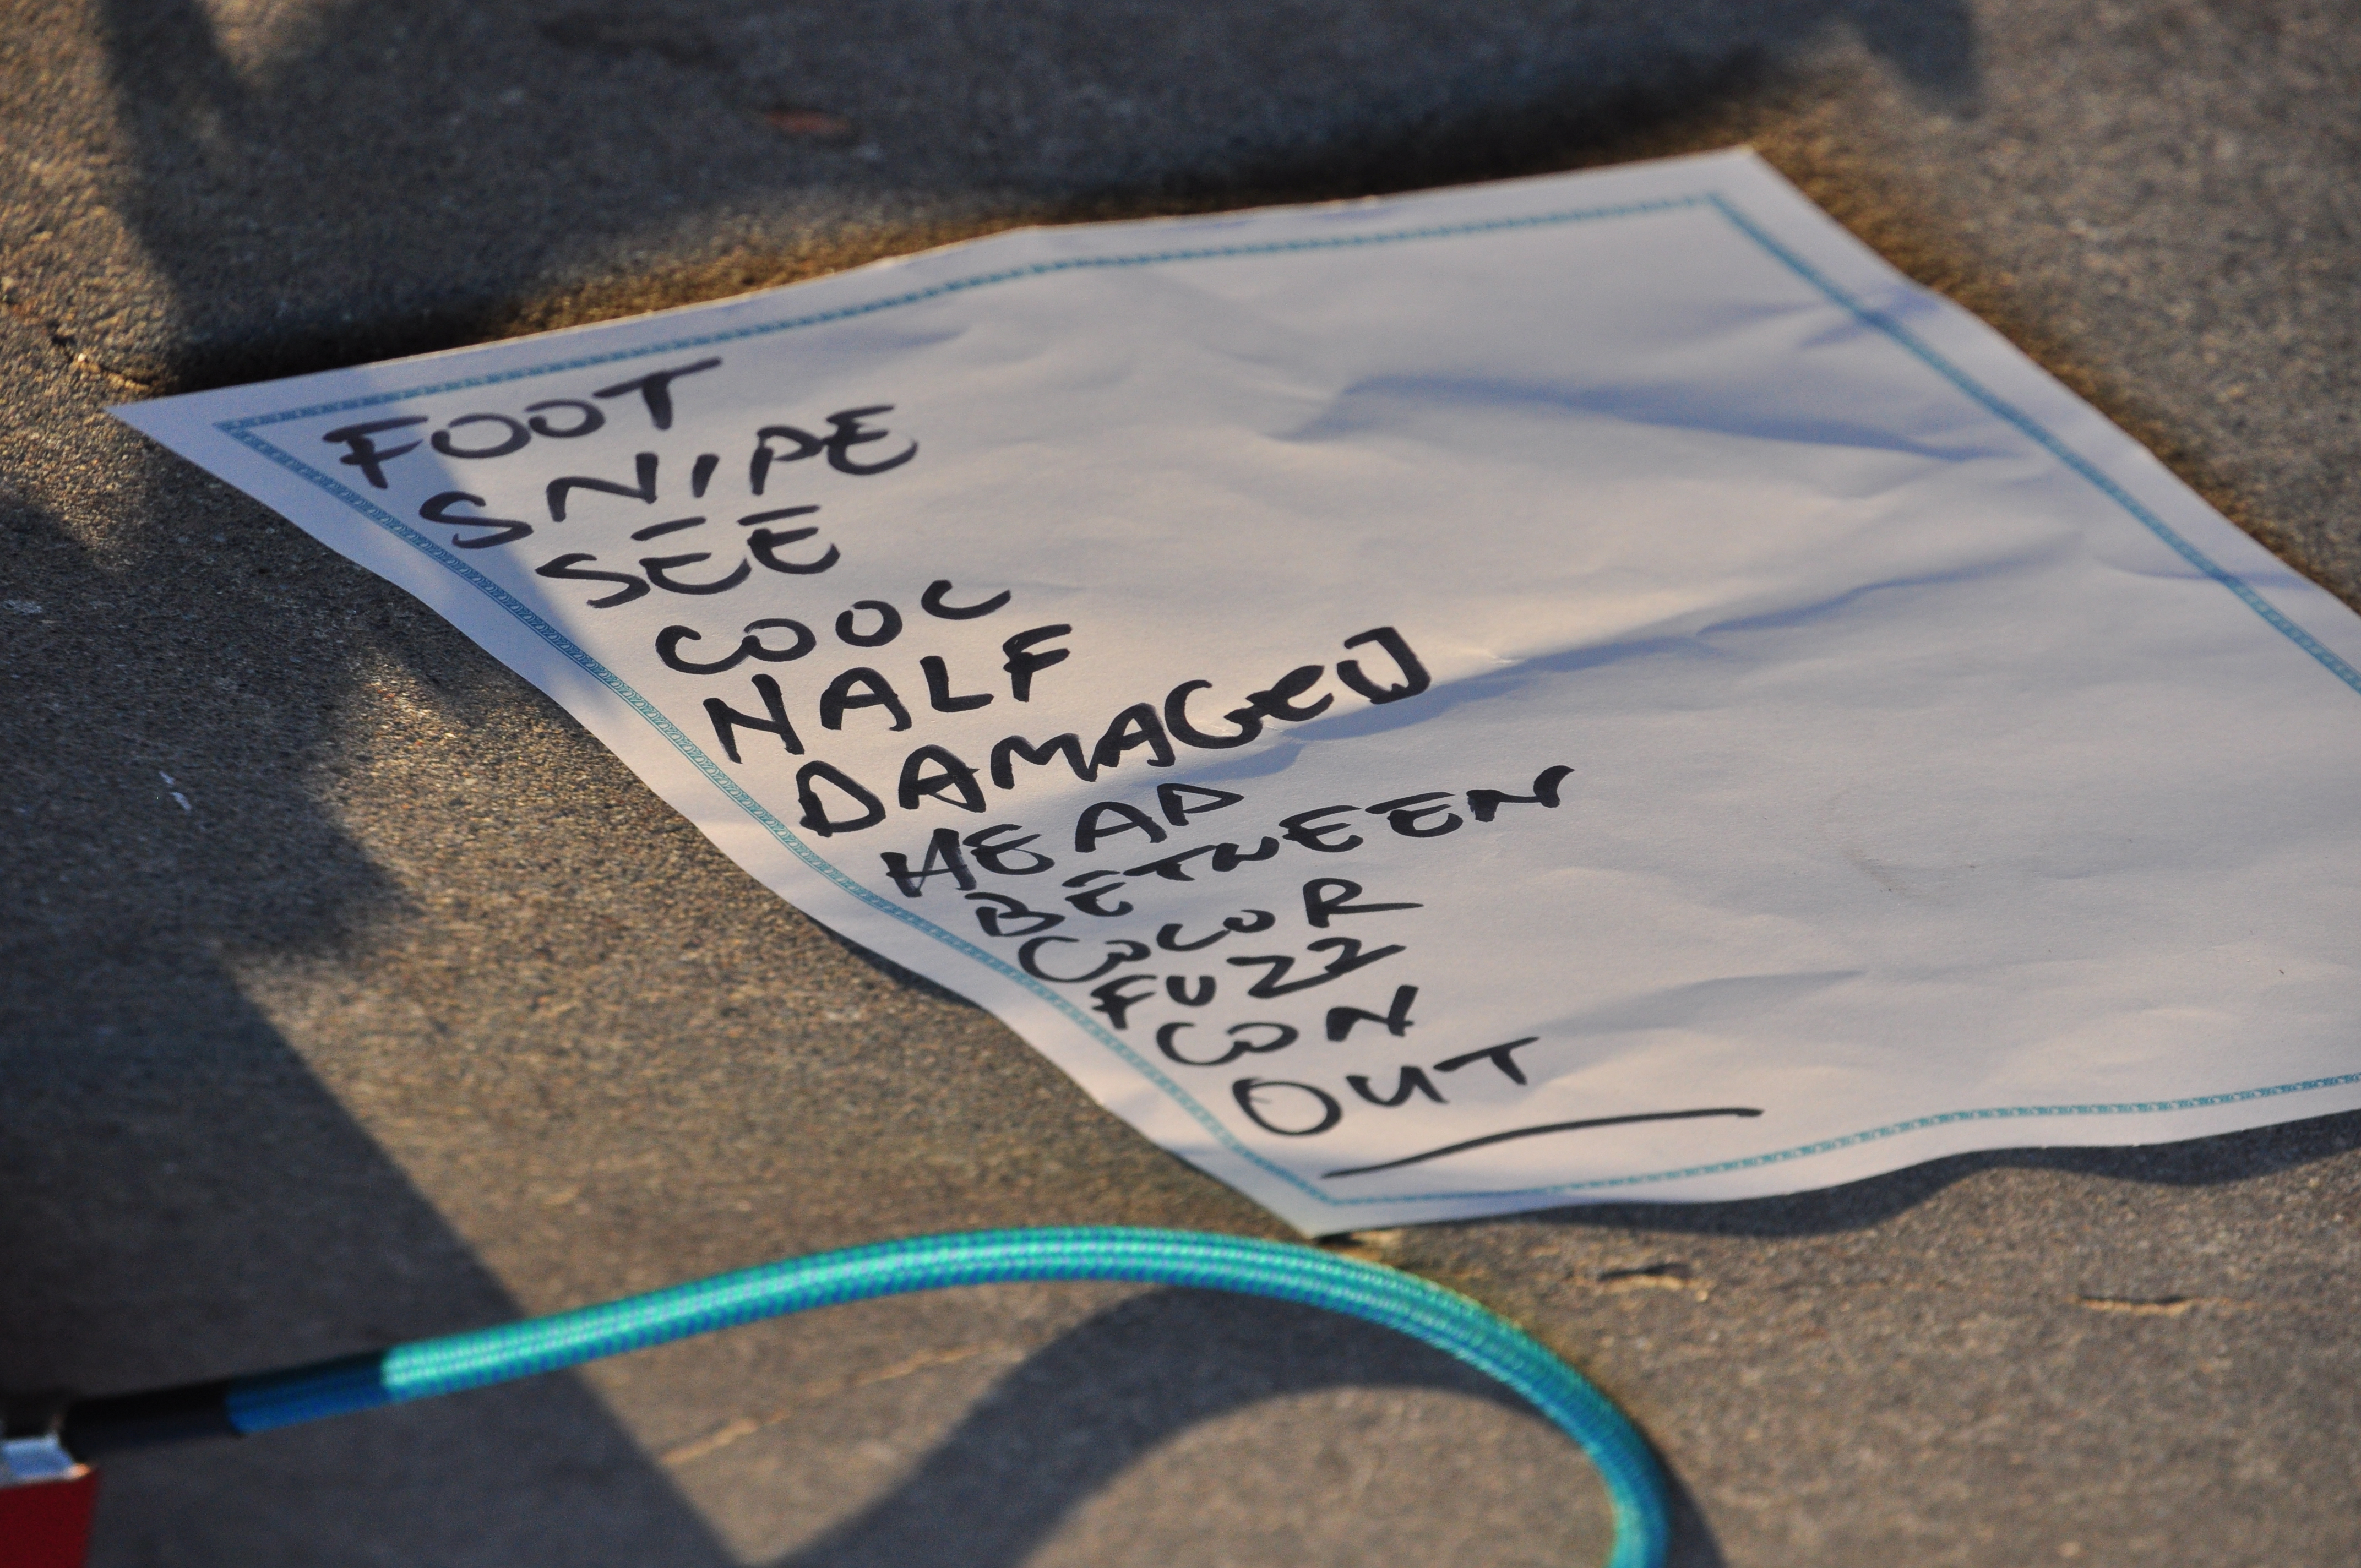 FOOT
SNIPE
SEE
COOL
HALF
DAMAGED
HEAD
BETWEEN
COLOR
FUZZ
CON
OUT